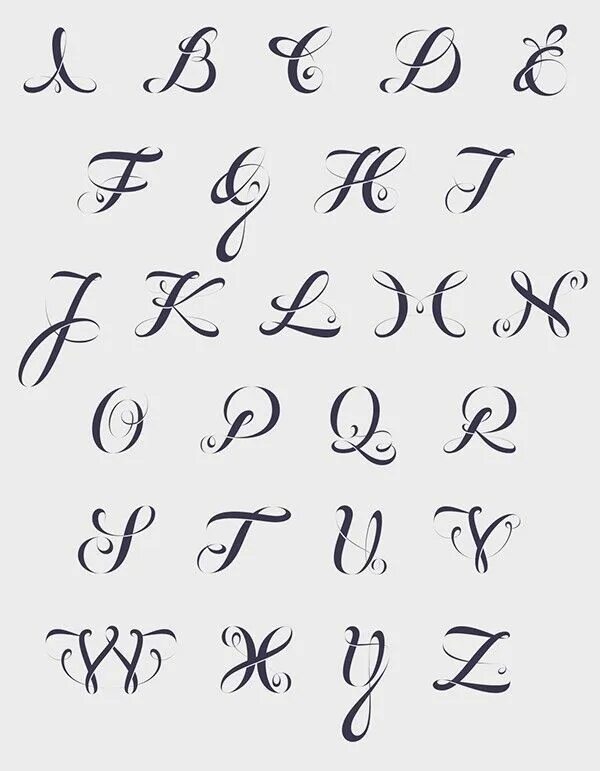 A B C D E
F G H I
J K L M N
O P Q R
S T U V
W X Y Z